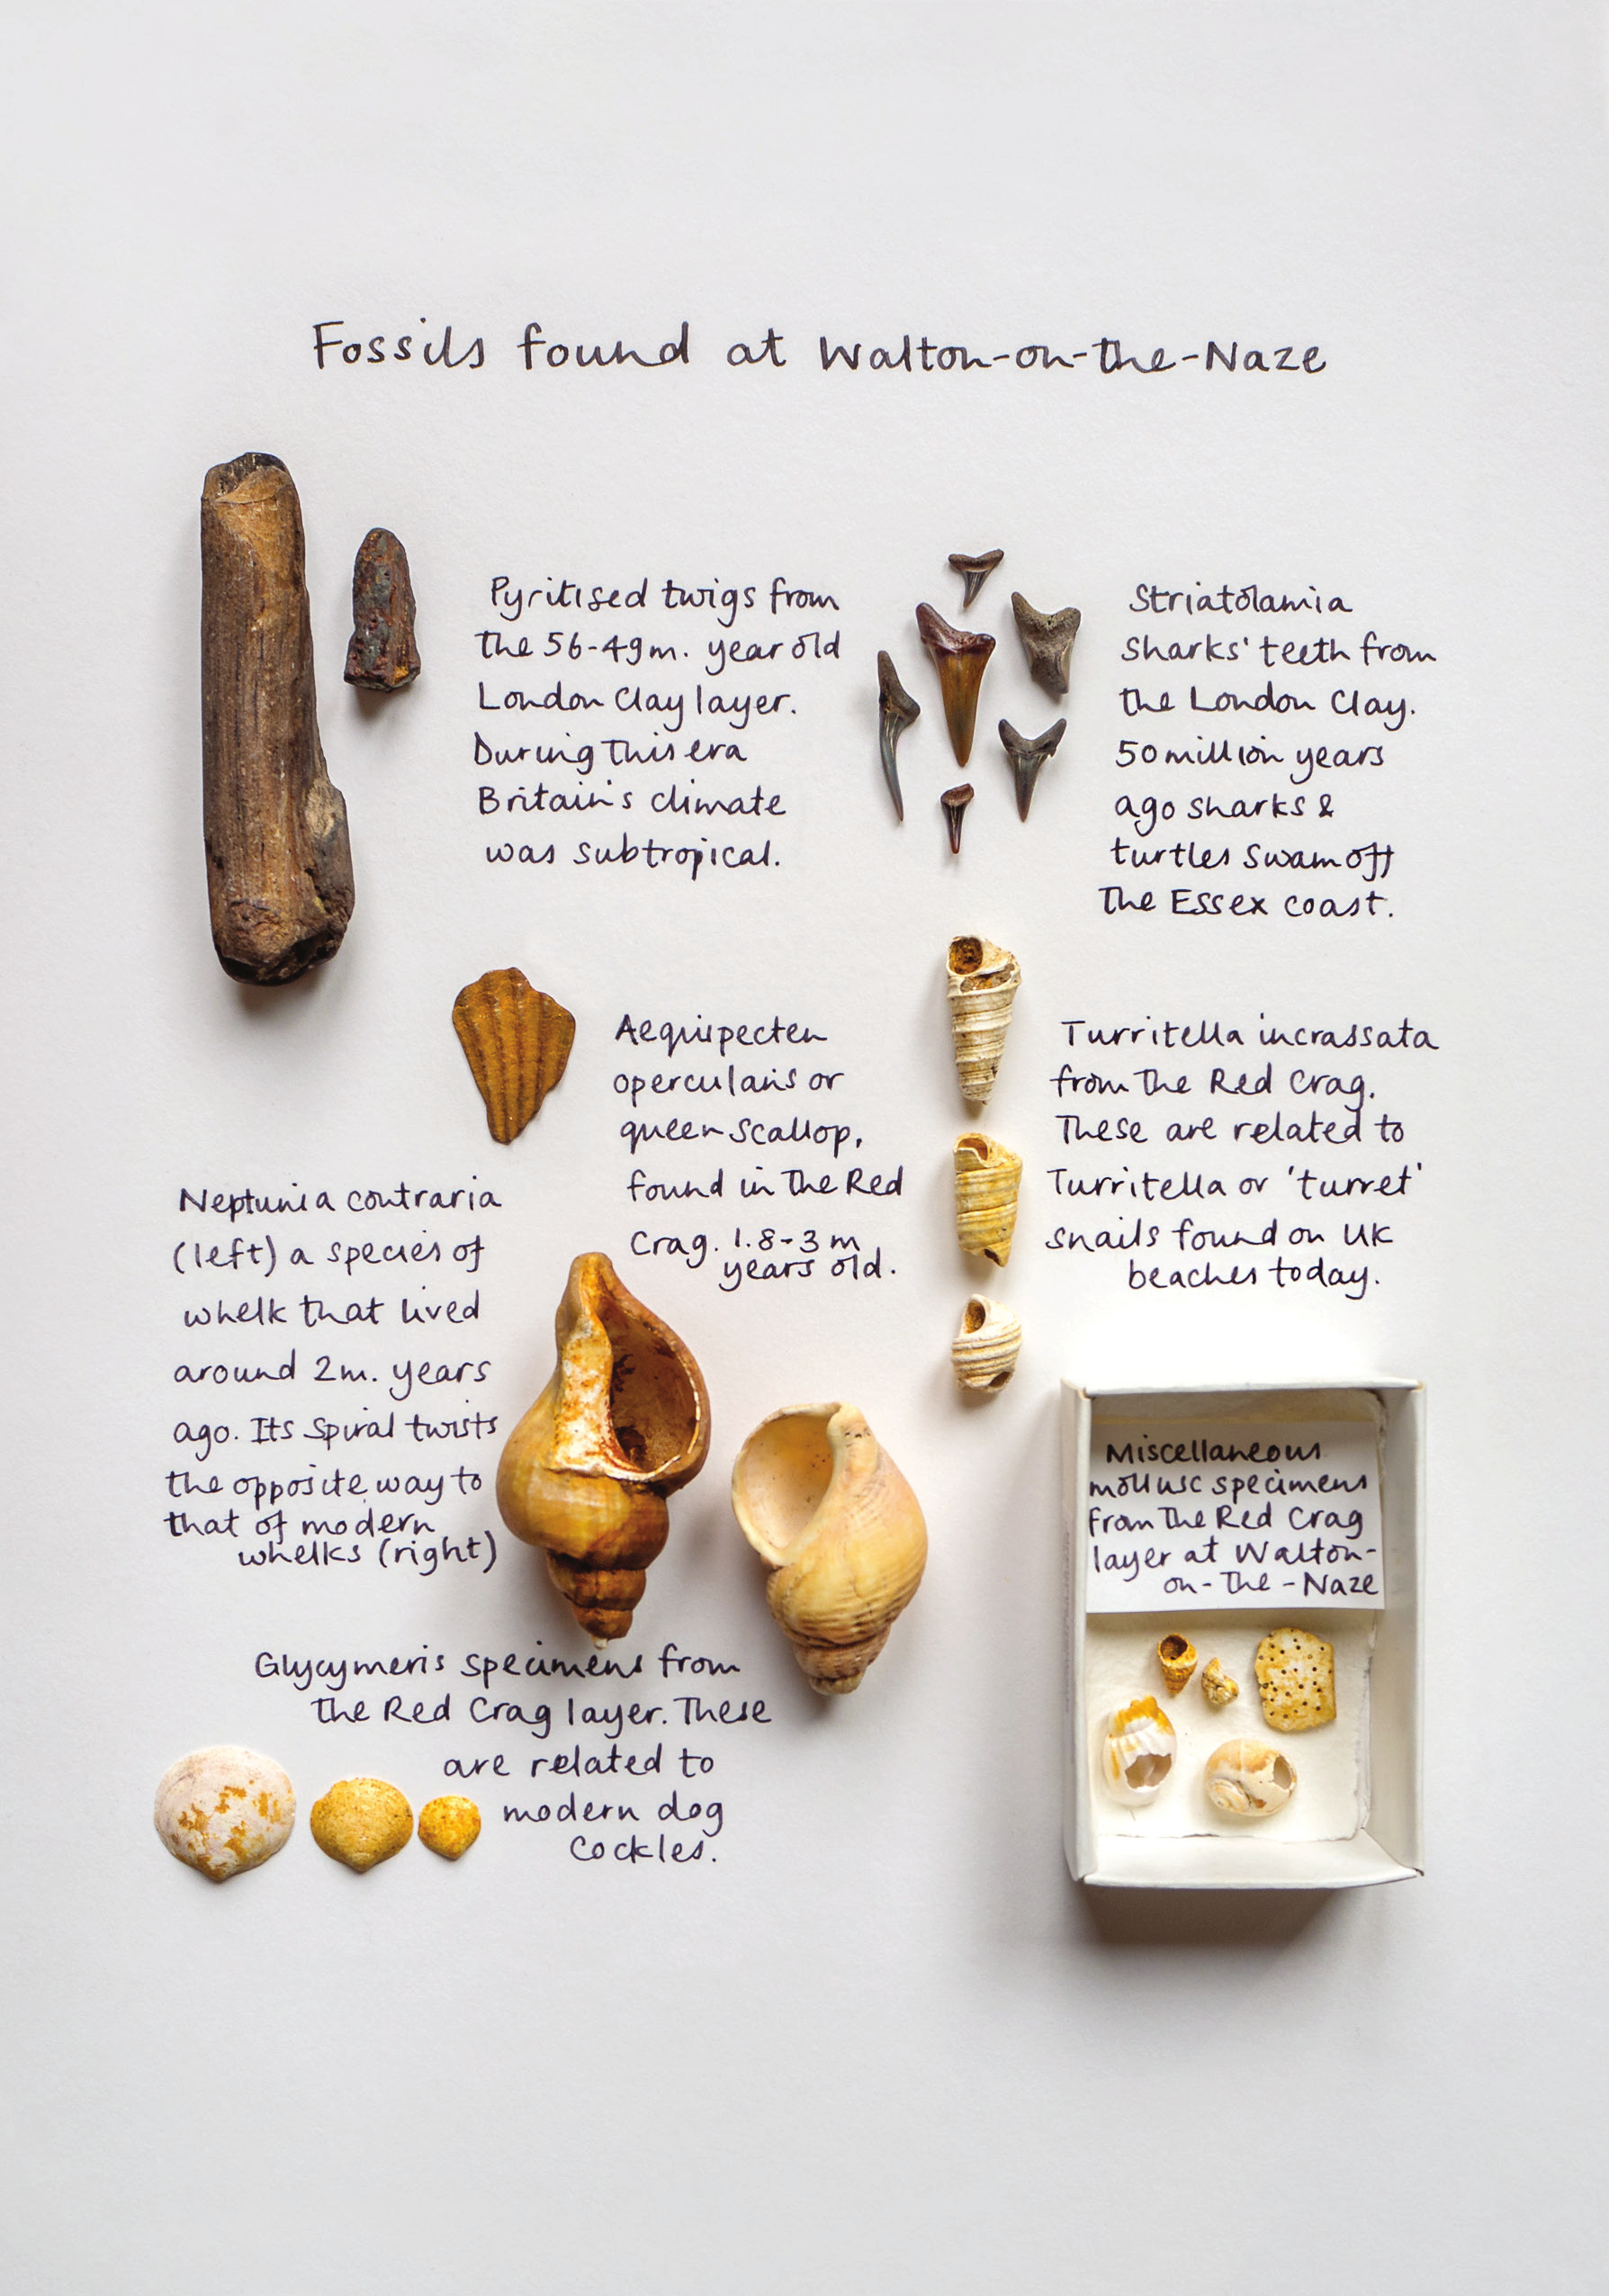 Fossils found at Walton-on-the-Naze
Pyritised twigs from
the 56-49m. year old
London Clay layer.
During this era
Britain's climate
was subtropical.
Striatolamia
sharks' teeth from
the London Clay.
50 million years
ago sharks &
turtles swam off
the Essex coast.
Aequipecten
opercularis or
queen scallop,
found in the Red
Crag. 1.8-3 m
years old.
Turritella incrassata
from the Red Crag.
These are related to
Turritella or 'turret'
snails found on UK
beaches today.
Neptunia contraria
(left) a species of
whelk that lived
around 2m. years
ago. Its spiral twists
the opposite way to
that of modern
whelks (right)
Glycymeris specimens from
the Red Crag layer. These
are related to
modern dog
cockles.
Miscellaneous
mollusc specimens
from the Red Crag
layer at Walton-
on-the-Naze